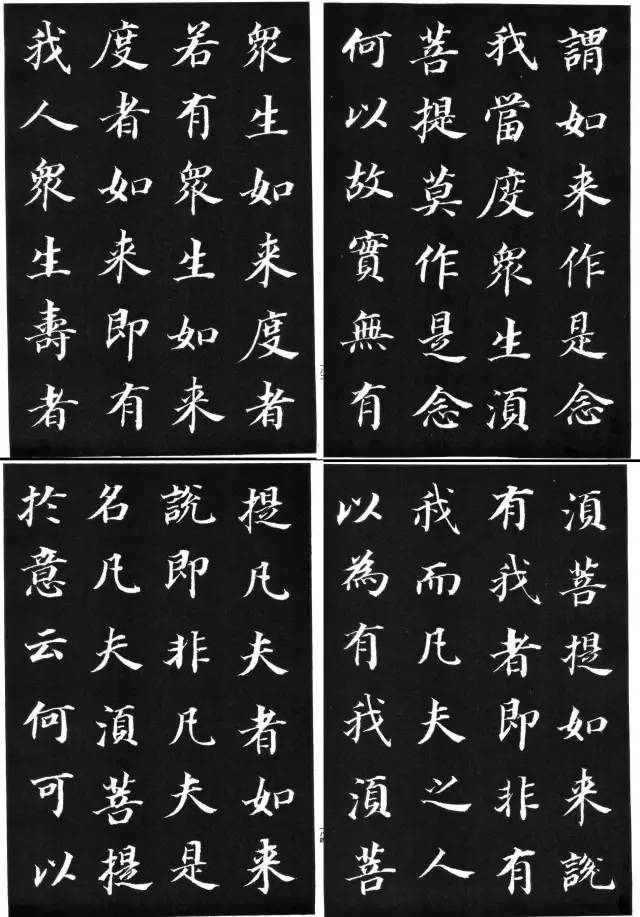 謂如来作是念
我當度衆生湏
菩提莫作是念
何以故實無有
衆生如来度者
若有衆生如来
度者如来即有
我人衆生壽者
湏菩提如来說
有我者即非有
我而凡夫之人
以為有我湏菩
提凡夫者如来
說即非凡夫是
名凡夫湏菩提
於意云何可以